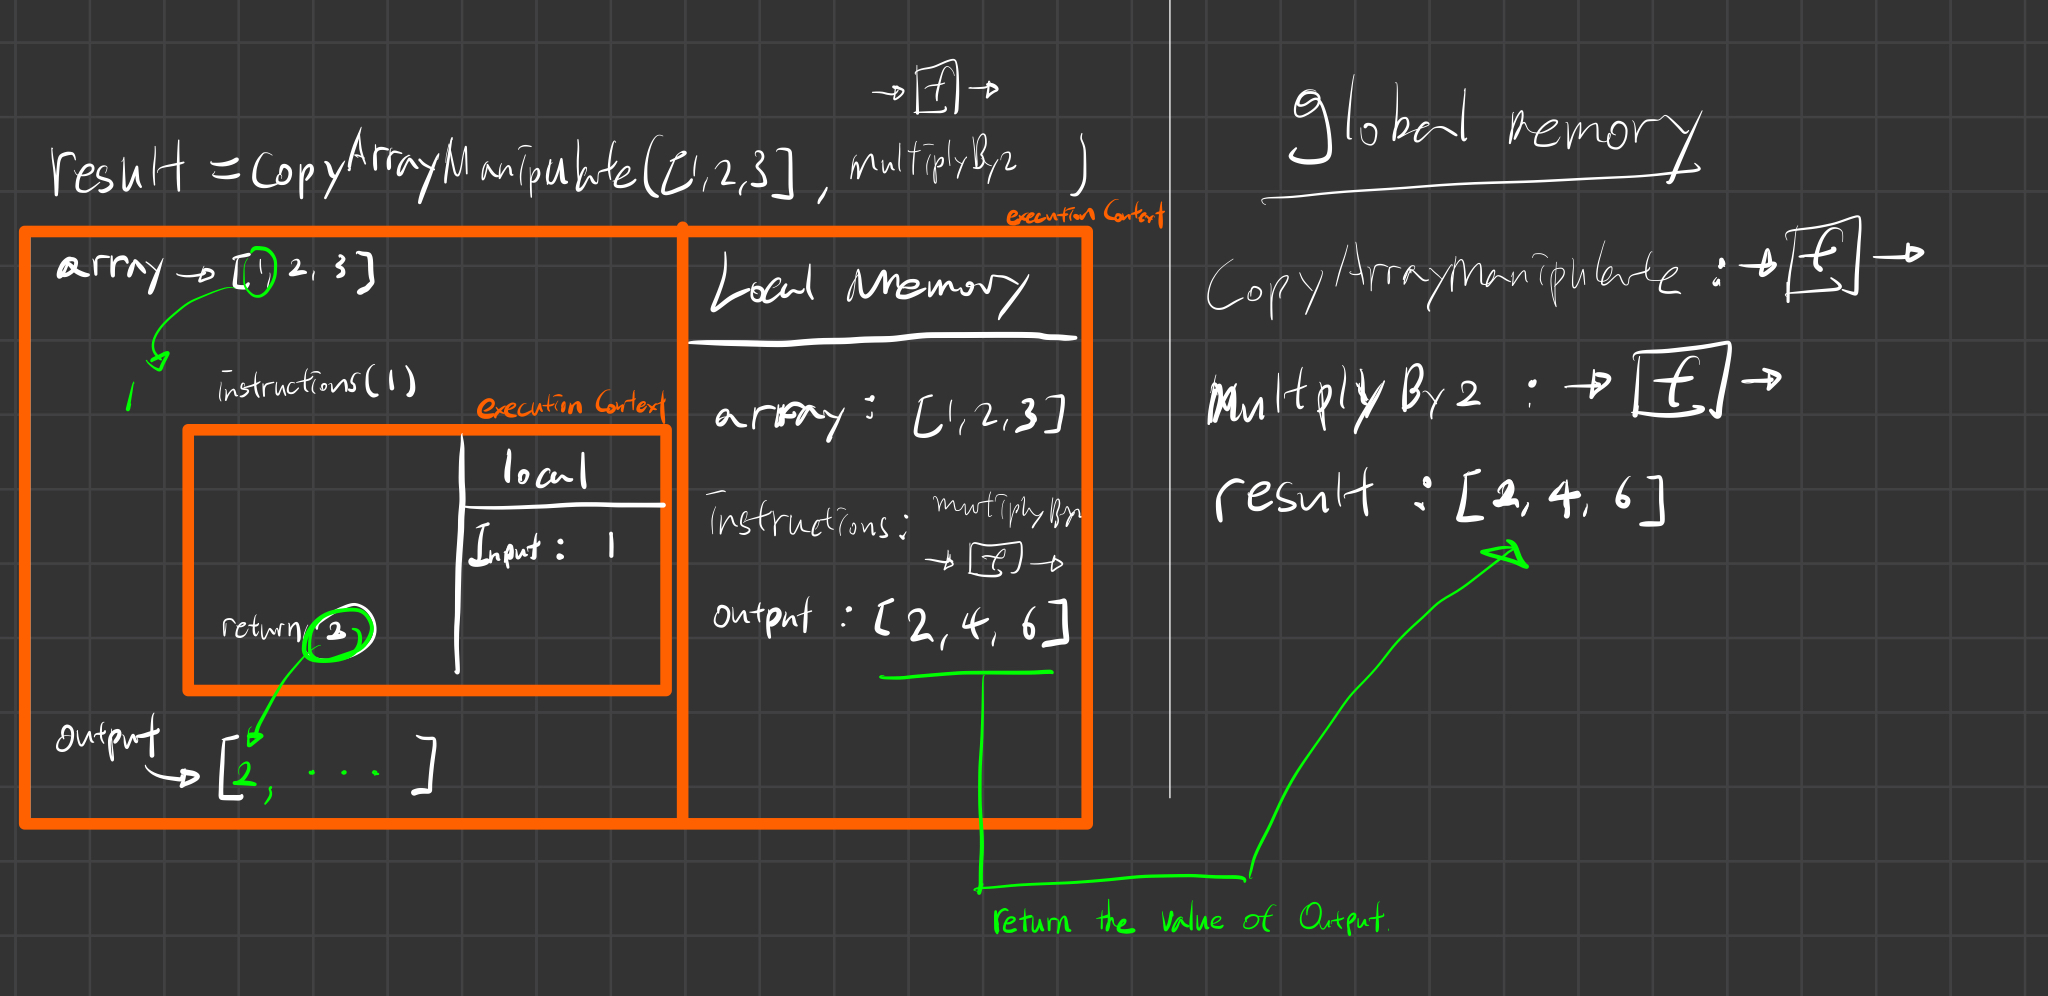 → [f] →
result = CopyArrayManipulate([1,2,3], multiplyBy2 )
execution Context
array → [1, 2, 3]
1
instructions(1)
execution Context
local
Input : 1
return 2
output
→ [2, ... ]
Local Memory
array : [1,2,3]
instructions :
→ [f] →
output : [2, 4, 6]
return the value of Output.
global memory
CopyArrayManipulate : → [f] →
MultplyBy2 : → [f] →
result : [2, 4, 6]